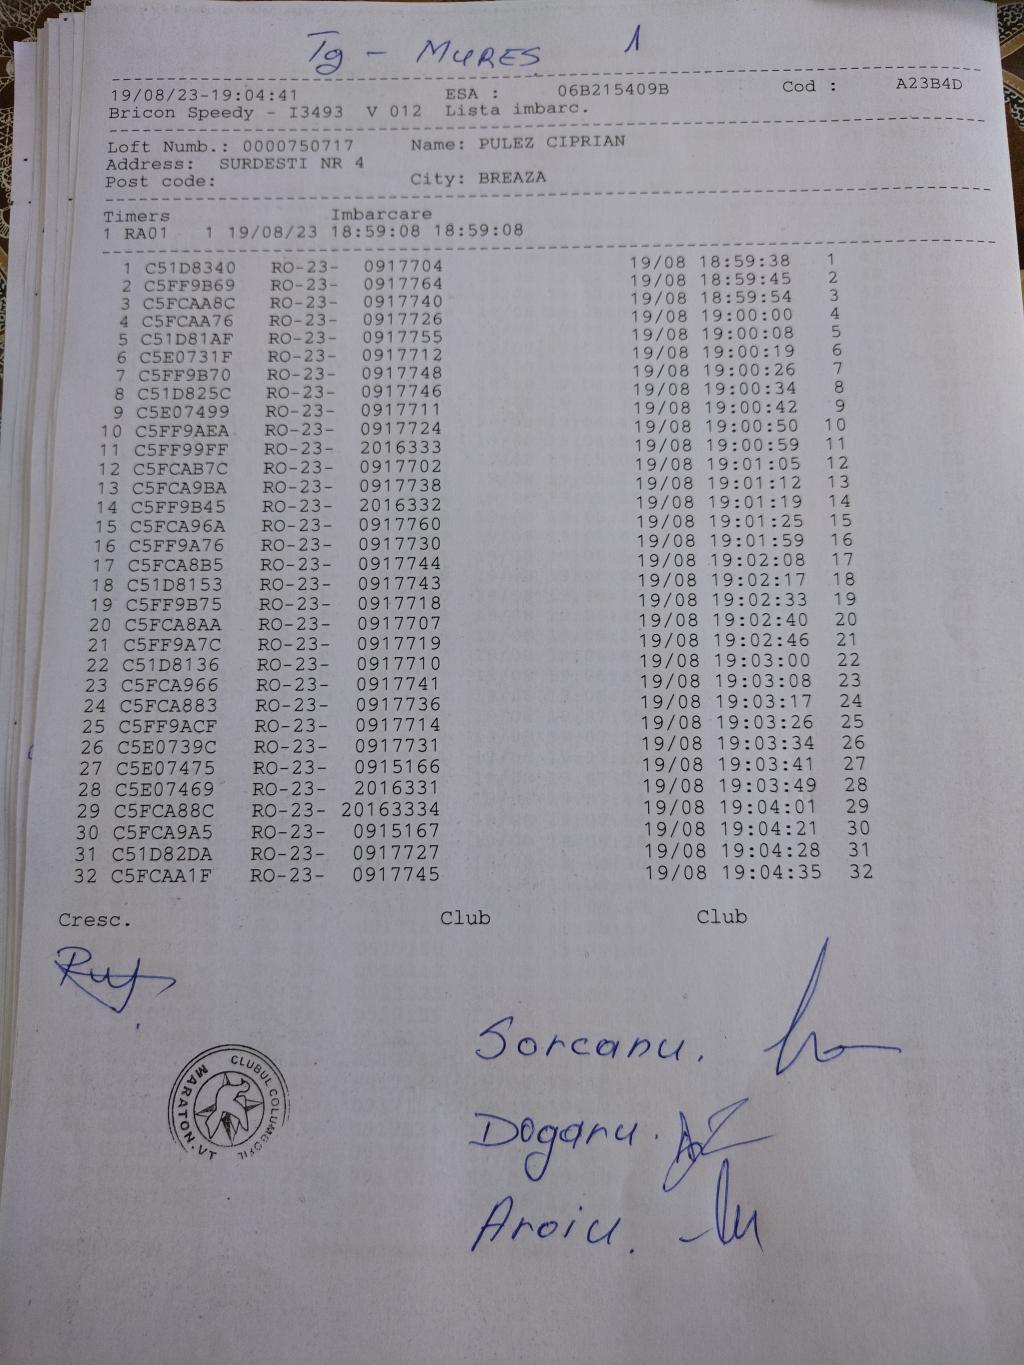 Tg - MURES 1
19/08/23-19:04:41 ESA : 06B215409B Cod : A23B4D
Bricon Speedy - I3493 V 012 Lista imbarc.
Loft Numb.: 0000750717 Name: PULEZ CIPRIAN
Address: SURDESTI NR 4
Post code: City: BREAZA
Timers Imbarcare
1 RA01 1 19/08/23 18:59:08 18:59:08
1 C51D8340 RO-23- 0917704 19/08 18:59:38 1
2 C5FF9B69 RO-23- 0917764 19/08 18:59:45 2
3 C5FCAA8C RO-23- 0917740 19/08 18:59:54 3
4 C5FCAA76 RO-23- 0917726 19/08 19:00:00 4
5 C51D81AF RO-23- 0917755 19/08 19:00:08 5
6 C5E0731F RO-23- 0917712 19/08 19:00:19 6
7 C5FF9B70 RO-23- 0917748 19/08 19:00:26 7
8 C51D825C RO-23- 0917746 19/08 19:00:34 8
9 C5E07499 RO-23- 0917711 19/08 19:00:42 9
10 C5FF9AEA RO-23- 0917724 19/08 19:00:50 10
11 C5FF99FF RO-23- 2016333 19/08 19:00:59 11
12 C5FCAB7C RO-23- 0917702 19/08 19:01:05 12
13 C5FCA9BA RO-23- 0917738 19/08 19:01:12 13
14 C5FF9B45 RO-23- 2016332 19/08 19:01:19 14
15 C5FCA96A RO-23- 0917760 19/08 19:01:25 15
16 C5FF9A76 RO-23- 0917730 19/08 19:01:59 16
17 C5FCA8B5 RO-23- 0917744 19/08 19:02:08 17
18 C51D8153 RO-23- 0917743 19/08 19:02:17 18
19 C5FF9B75 RO-23- 0917718 19/08 19:02:33 19
20 C5FCA8AA RO-23- 0917707 19/08 19:02:40 20
21 C5FF9A7C RO-23- 0917719 19/08 19:02:46 21
22 C51D8136 RO-23- 0917710 19/08 19:03:00 22
23 C5FCA966 RO-23- 0917741 19/08 19:03:08 23
24 C5FCA883 RO-23- 0917736 19/08 19:03:17 24
25 C5FF9ACF RO-23- 0917714 19/08 19:03:26 25
26 C5E0739C RO-23- 0917731 19/08 19:03:34 26
27 C5E07475 RO-23- 0915166 19/08 19:03:41 27
28 C5E07469 RO-23- 2016331 19/08 19:03:49 28
29 C5FCA88C RO-23- 20163334 19/08 19:04:01 29
30 C5FCA9A5 RO-23- 0915167 19/08 19:04:21 30
31 C51D82DA RO-23- 0917727 19/08 19:04:28 31
32 C5FCAA1F RO-23- 0917745 19/08 19:04:35 32
Cresc. Club Club
Sorcanu.
CLUBUL COLUMBOFIL
MARATON.VT
Doganu.
Aroiu.